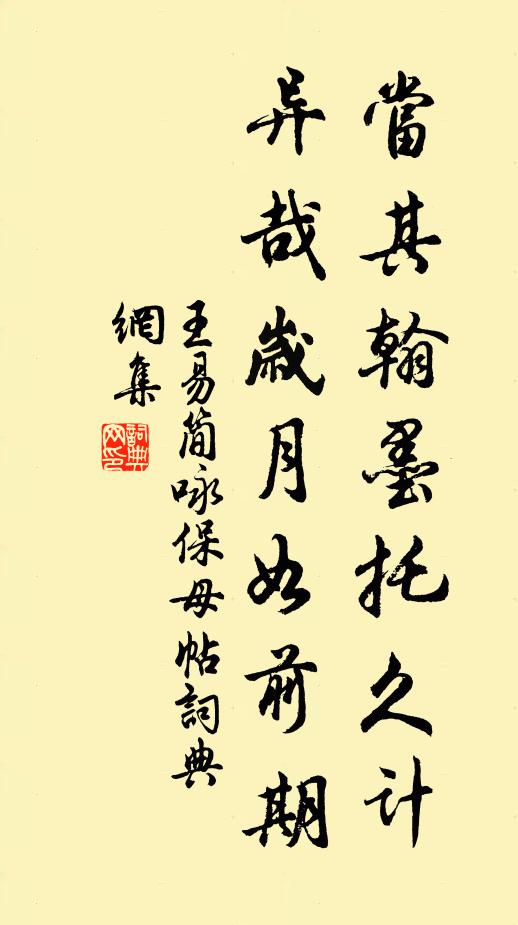 當其翰墨托久計
异哉歲月如前期
王易简咏保母帖詞典
網集
詞典
网印